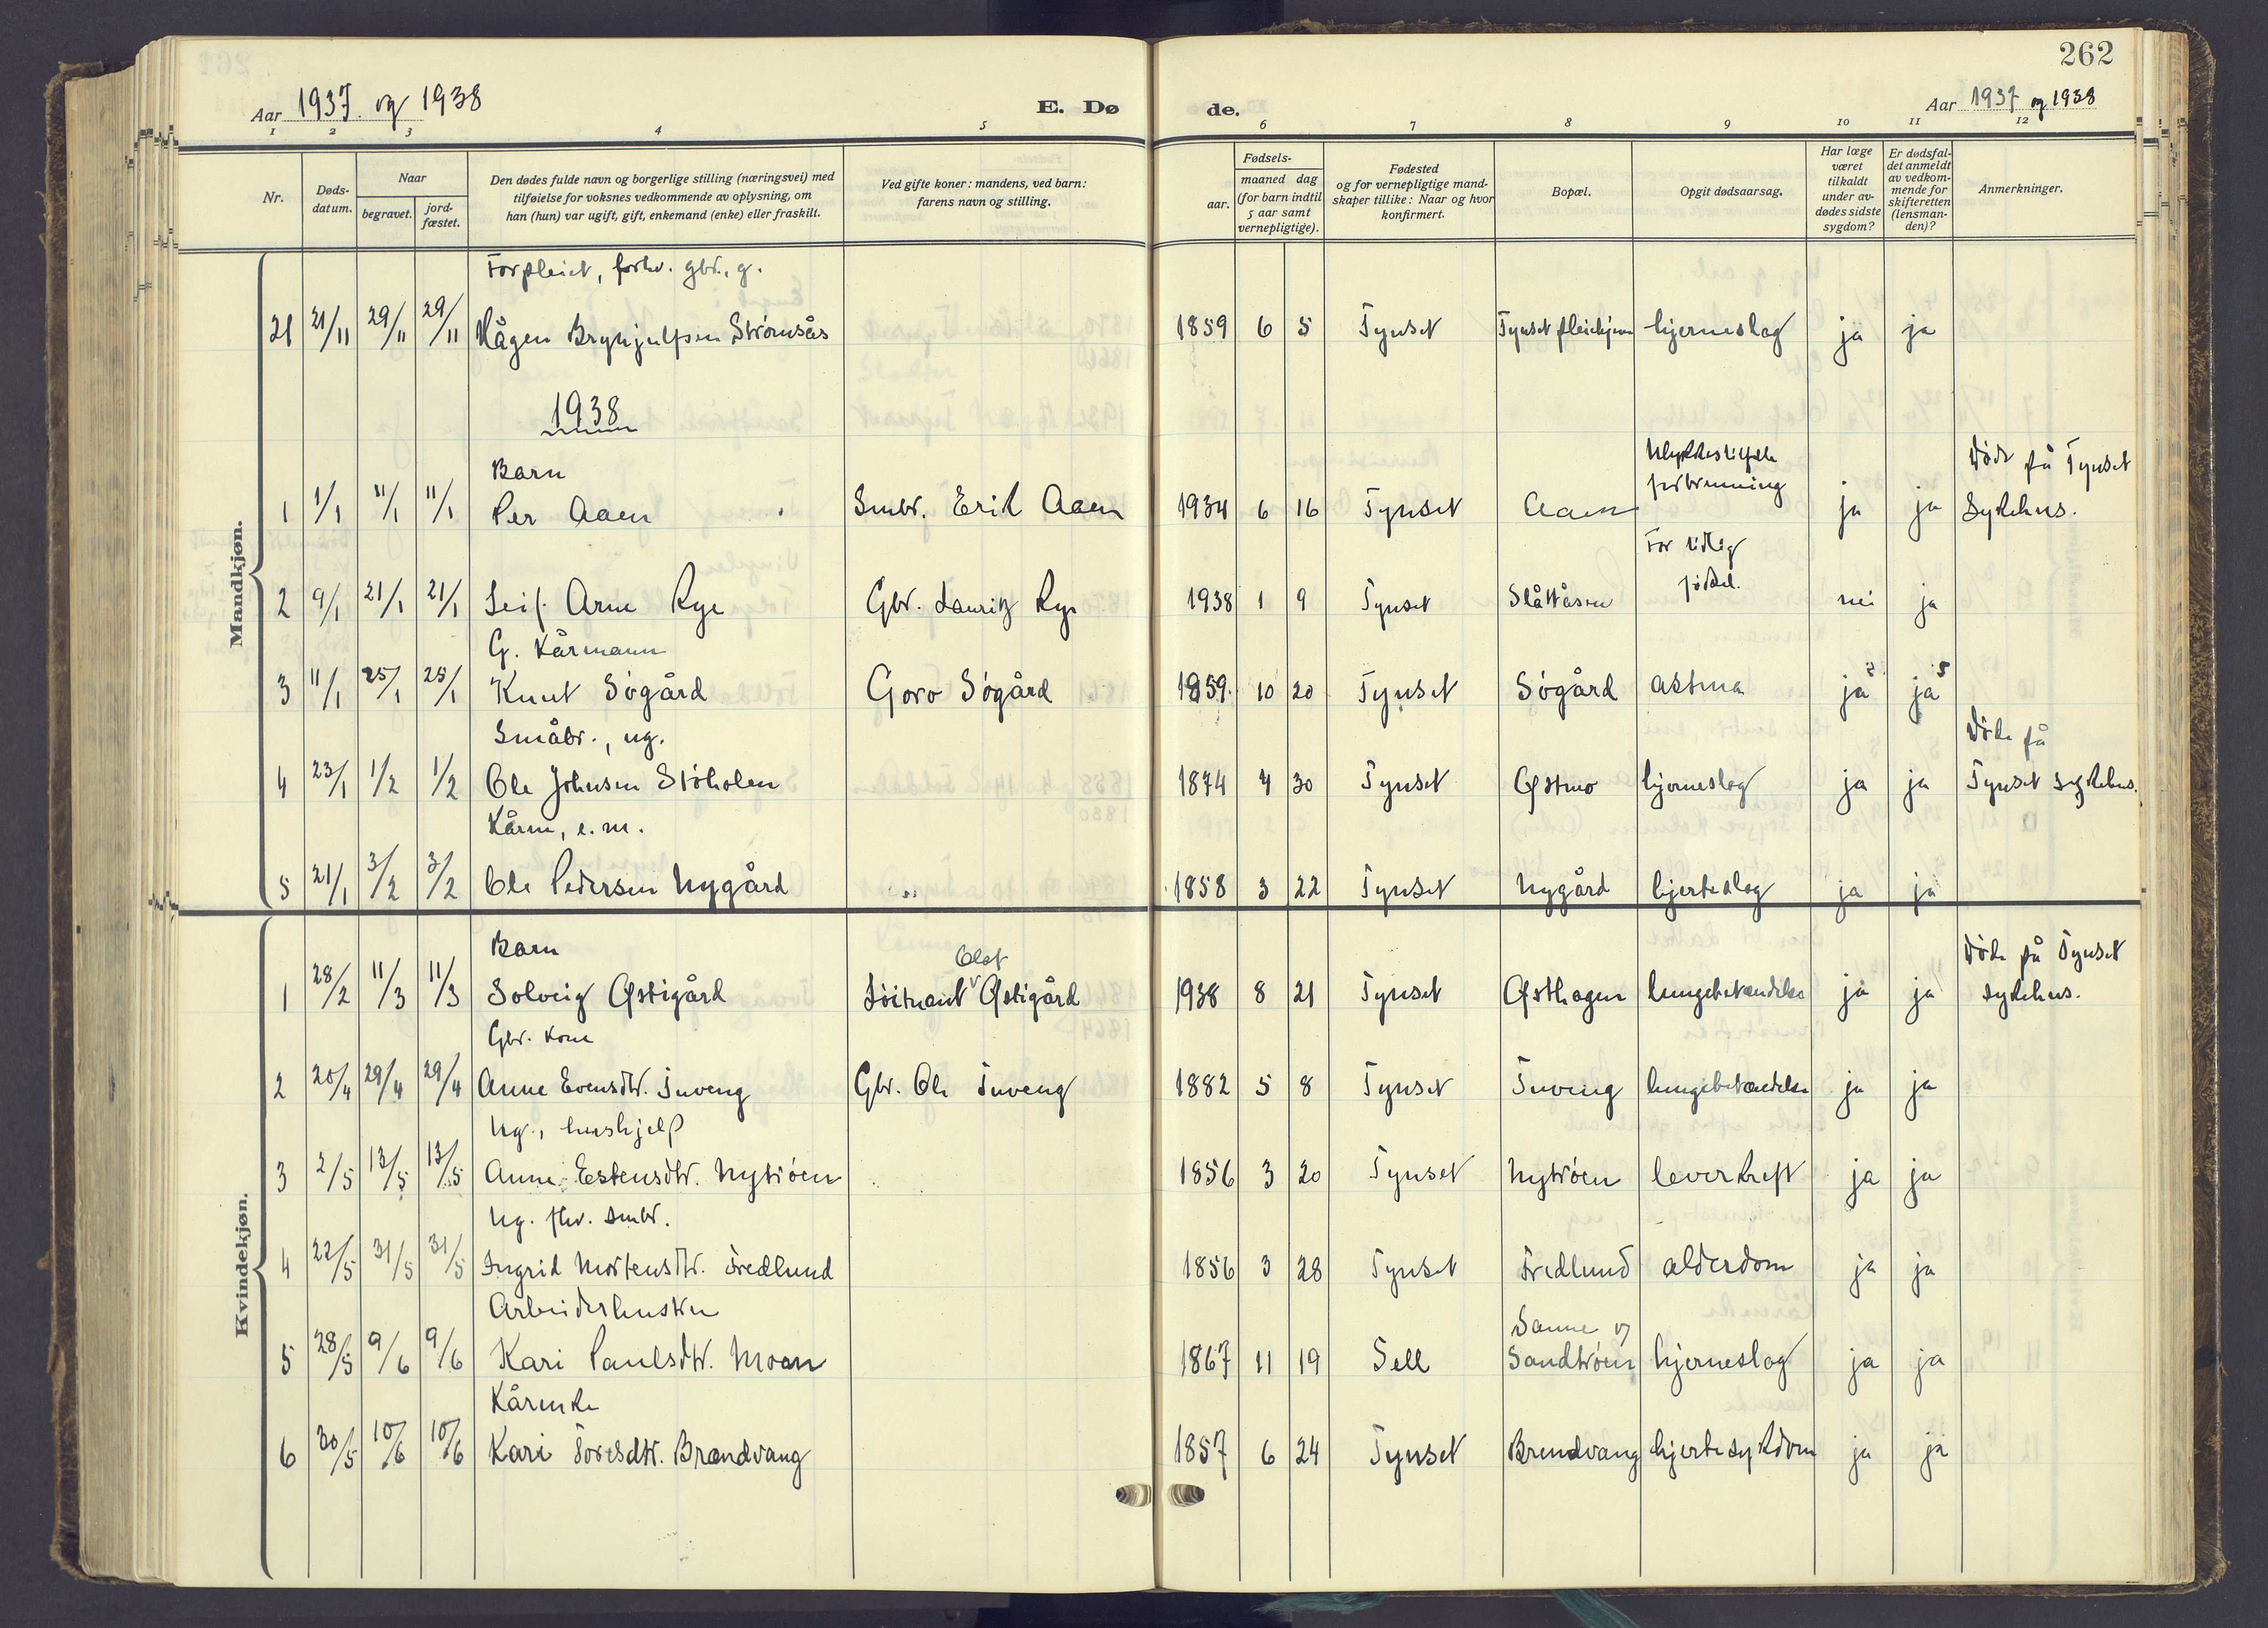 262
Aar 1937 og 1938
E. Dø
de.
Aar 1937 og 1938
1 2 3 4 5 6 7 8 9 10 11 12
Nr.
Døds-
datum.
Naar
begravet.
jord-
fæstet.
Den dødes fulde navn og borgerlige stilling (næringsvei) med
tilføielse for voksnes vedkommende av oplysning, om
han (hun) var ugift, gift, enkemand (enke) eller fraskilt.
Ved gifte koner: mandens, ved barn:
farens navn og stilling.
Fødsels-
aar.
maaned dag
(for barn indtil
5 aar samt
vernepligtige).
Fødested
og for vernepligtige mand-
skaper tillike: Naar og hvor
konfirmert.
Bopæl.
Opgit dødsaarsag.
Har læge
været
tilkaldt
under av-
dødes sidste
sygdom?
Er dødsfal-
det anmeldt
av vedkom-
mende for
skifteretten
(lensman-
den)?
Anmerkninger.
Mandkjøn.
Forpleiet, forhv. gbr., g.
21 21/11 29/11 29/11 Hågen Brynjulfsen Strømsås 1859 6 5 Tynset Tynset pleiehjem hjerneslag ja ja
1938
Barn
Ulykkestilfelle
forbrenning
Døde på Tynset
1 1/1 11/1 11/1 Per Aaen Smbr. Erik Aaen 1934 6 16 Tynset Aaen ja ja Sykehus.
For tidlig
fødsel.
2 9/1 21/1 21/1 Leif Arne Rye Gbr. Lauritz Rye 1938 1 9 Tynset Slåttåsen nei ja
G. Kårmann
3 11/1 25/1 25/1 Knut Søgård Goro Søgård 1859 10 20 Tynset Søgård astma ja ja
Småbr., ug.
Døde på
4 23/1 1/2 1/2 Ole Johnsen Støholen 1874 4 30 Tynset Østmo hjerneslag ja ja Tynset sykehus.
Kårm, e.m.
5 21/1 3/2 3/2 Ole Pedersen Nygård 1858 3 22 Tynset Nygård hjerteslag ja ja
Kvindekjøn.
Barn
Olaf
Døde på Tynset
1 28/2 11/3 11/3 Solveig Østigård Løitnant Østigård 1938 8 21 Tynset Østhagen lungebetændelse ja ja sykehus.
Gbr. kone
2 20/4 29/4 29/4 Anne Evensdtr. Tuveng Gbr. Ole Tuveng 1882 5 8 Tynset Tuveng lungebetændelse ja ja
Ug., hushjelp
3 2/5 13/5 13/5 Anne Estensdtr. Nytrøen 1856 3 20 Tynset Nytrøen leverkreft ja ja
Ug. fhv. smbr.
4 22/5 31/5 31/5 Ingrid Mortensdtr. Fredlund 1856 3 28 Tynset Fredlund alderdom ja ja
Arbeiderhustru
5 28/5 9/6 9/6 Kari Paulsdtr. Moan 1867 11 19 Sell Sandtrøen hjerneslag ja ja
Kårenke
6 30/5 10/6 10/6 Kari Toresdtr. Brændvang 1857 6 24 Tynset Brendvang hjertesykdom ja ja